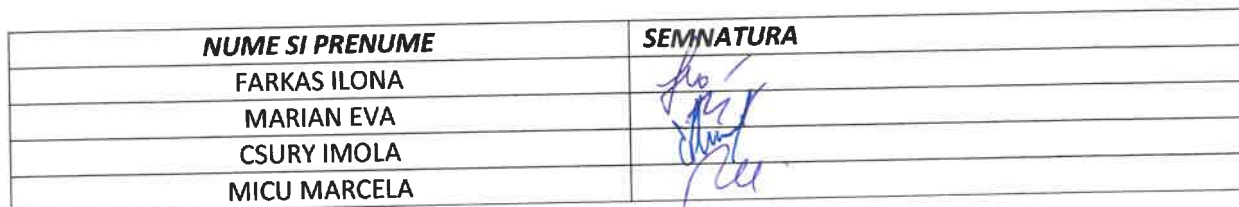 NUME SI PRENUME SEMNATURA
FARKAS ILONA
MARIAN EVA
CSURY IMOLA
MICU MARCELA